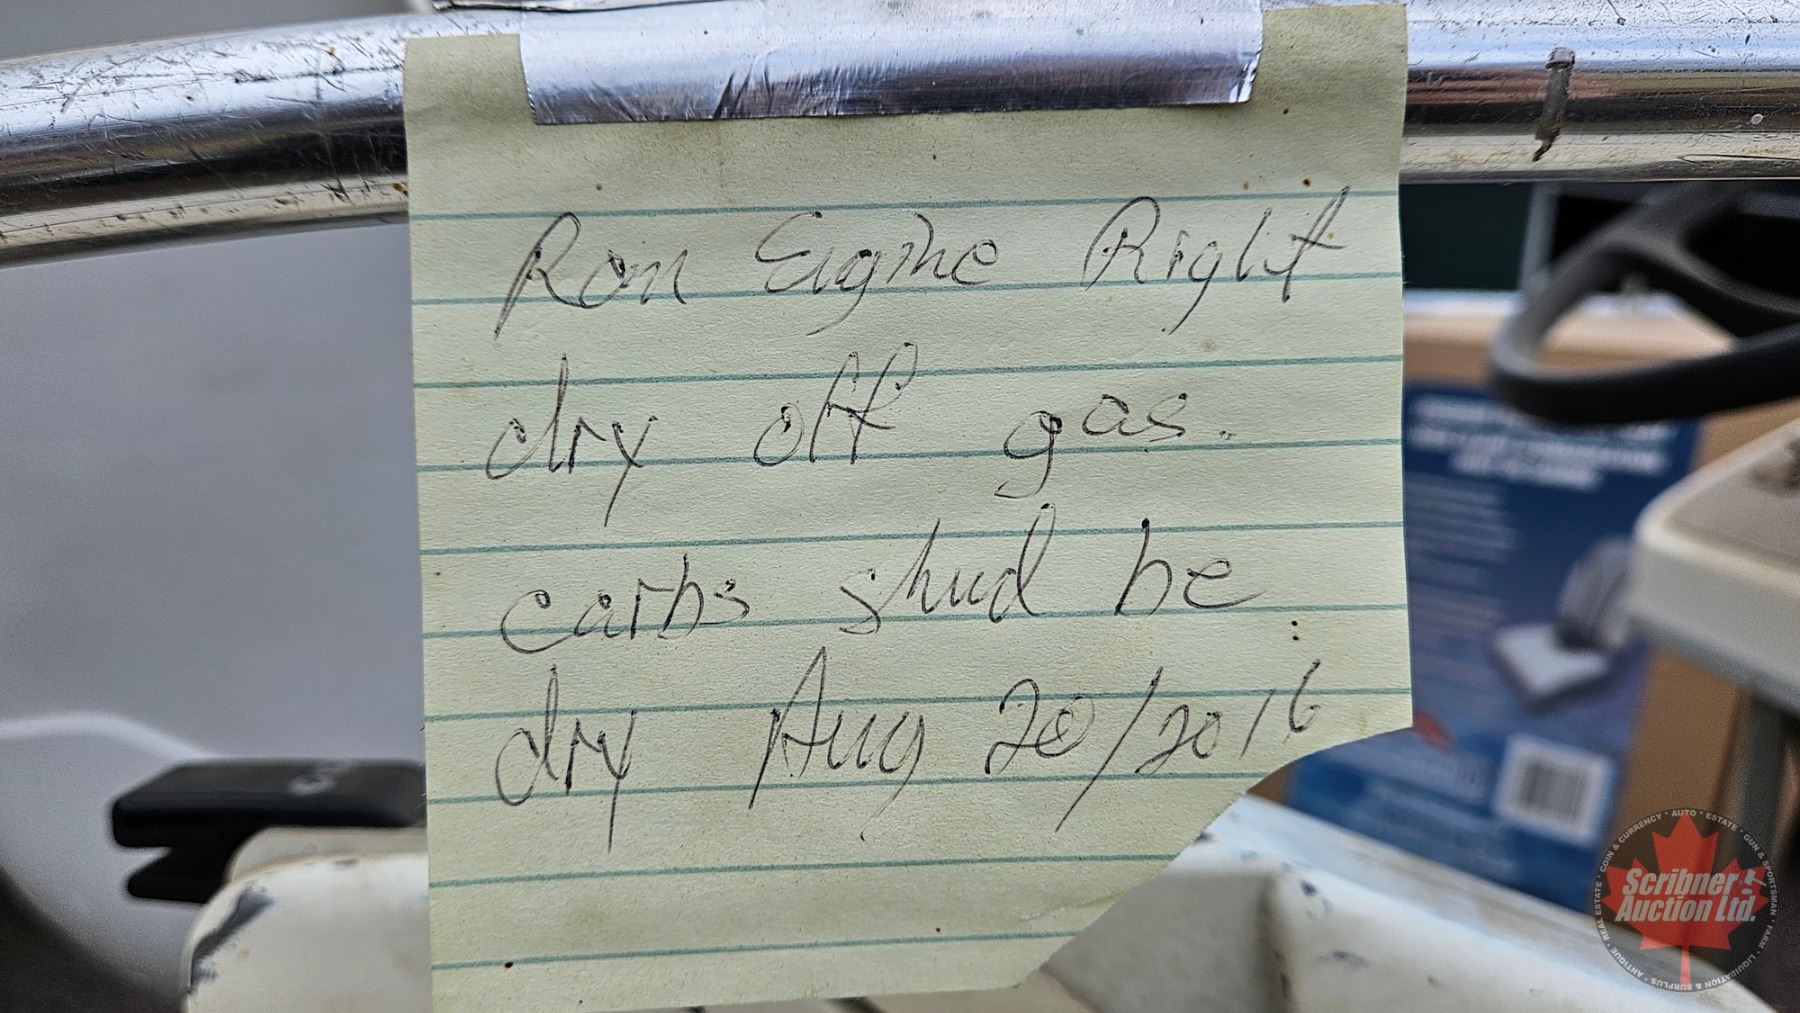 Ron Engine Right
dry off gas.
carbs shud be
dry Aug 20/2016
Scribner
Auction Ltd.
COIN & CURRENCY • AUTO • ESTATE • GUN & SPORTSMAN • FARM • LIQUIDATION & SURPLUS • ANTIQUE • REAL ESTATE •